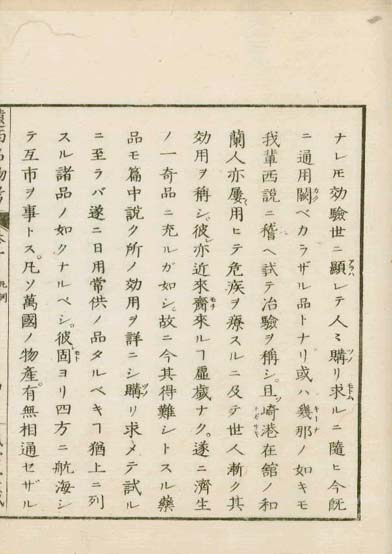 ナレモ効驗世ニ顯レテ人〻購リ求ルニ隨ヒ今既
ニ通用闕ベカラザル品トナリ或ハ幾那ノ如キモ
我輩西説ニ稽ヘ試テ治驗ヲ稱シ且ツ崎港在館ノ和
蘭人亦屢〻用ヒテ危疾ヲ療スルニ及テ世人漸ク其
効用ヲ稱シ彼レ亦近來齎來ルヿ虚歳ナク遂ニ濟生
ノ一奇品ニ充ルガ如シ故ニ今其得難シトスル藥
品モ篇中説ク所ノ効用ヲ詳ニシ購リ求メテ試ル
ニ至ラバ遂ニ日用常供ノ品タルベキヿ猶上ニ列
スル諸品ノ如クナルベシ彼固ヨリ四方ニ航海シ
テ互市ヲ事トス凡ソ萬國ノ物産有無相通セザル